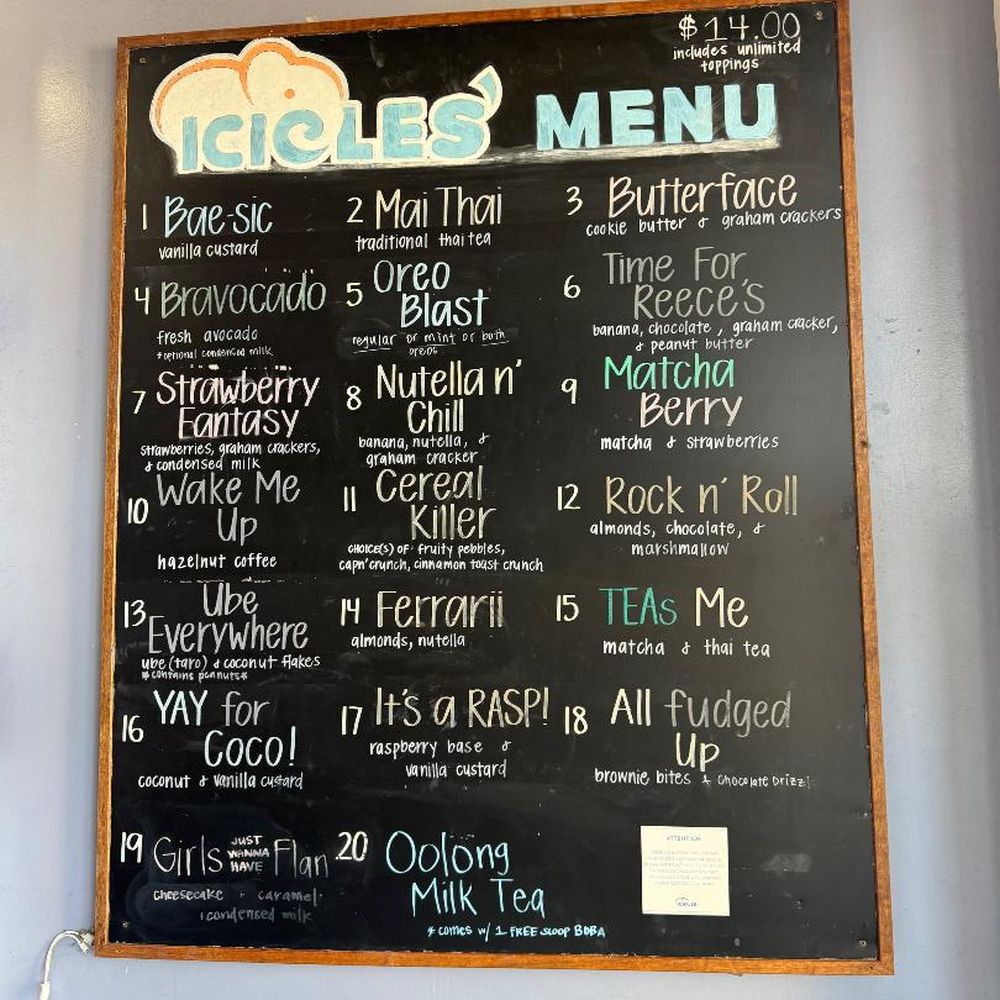 $14.00
includes unlimited
toppings
ICICLES' MENU
1 Bae-sic
vanilla custard
2 Mai Thai
traditional thai tea
3 Butterface
cookie butter & graham crackers
4 Bravocado
fresh avocado
*optional condensed milk
5 Oreo
Blast
regular or mint or both
oreos
6 Time For
Reece's
banana, chocolate, graham cracker,
& peanut butter
7 Strawberry
Fantasy
strawberries, graham crackers,
& condensed milk
8 Nutella n'
Chill
banana, nutella, &
graham cracker
9 Matcha
Berry
matcha & strawberries
10 Wake Me
Up
hazelnut coffee
11 Cereal
Killer
choice(s) of: fruity pebbles,
capn'crunch, cinnamon toast crunch
12 Rock n' Roll
almonds, chocolate, &
marshmallow
13 Ube
Everywhere
ube (taro) & coconut flakes
*contains peanuts*
14 Ferrarii
almonds, nutella
15 TEAs Me
matcha & thai tea
16 YAY for
Coco!
coconut & vanilla custard
17 It's a RASP!
raspberry base &
vanilla custard
18 All fudged
Up
brownie bites & chocolate Drizzl
19 Girls JUST WANNA HAVE Flan
cheesecake + caramel
+condensed milk
20 Oolong
Milk Tea
* comes w/ 1 FREE scoop BOBA
ATTENTION
ICICLES